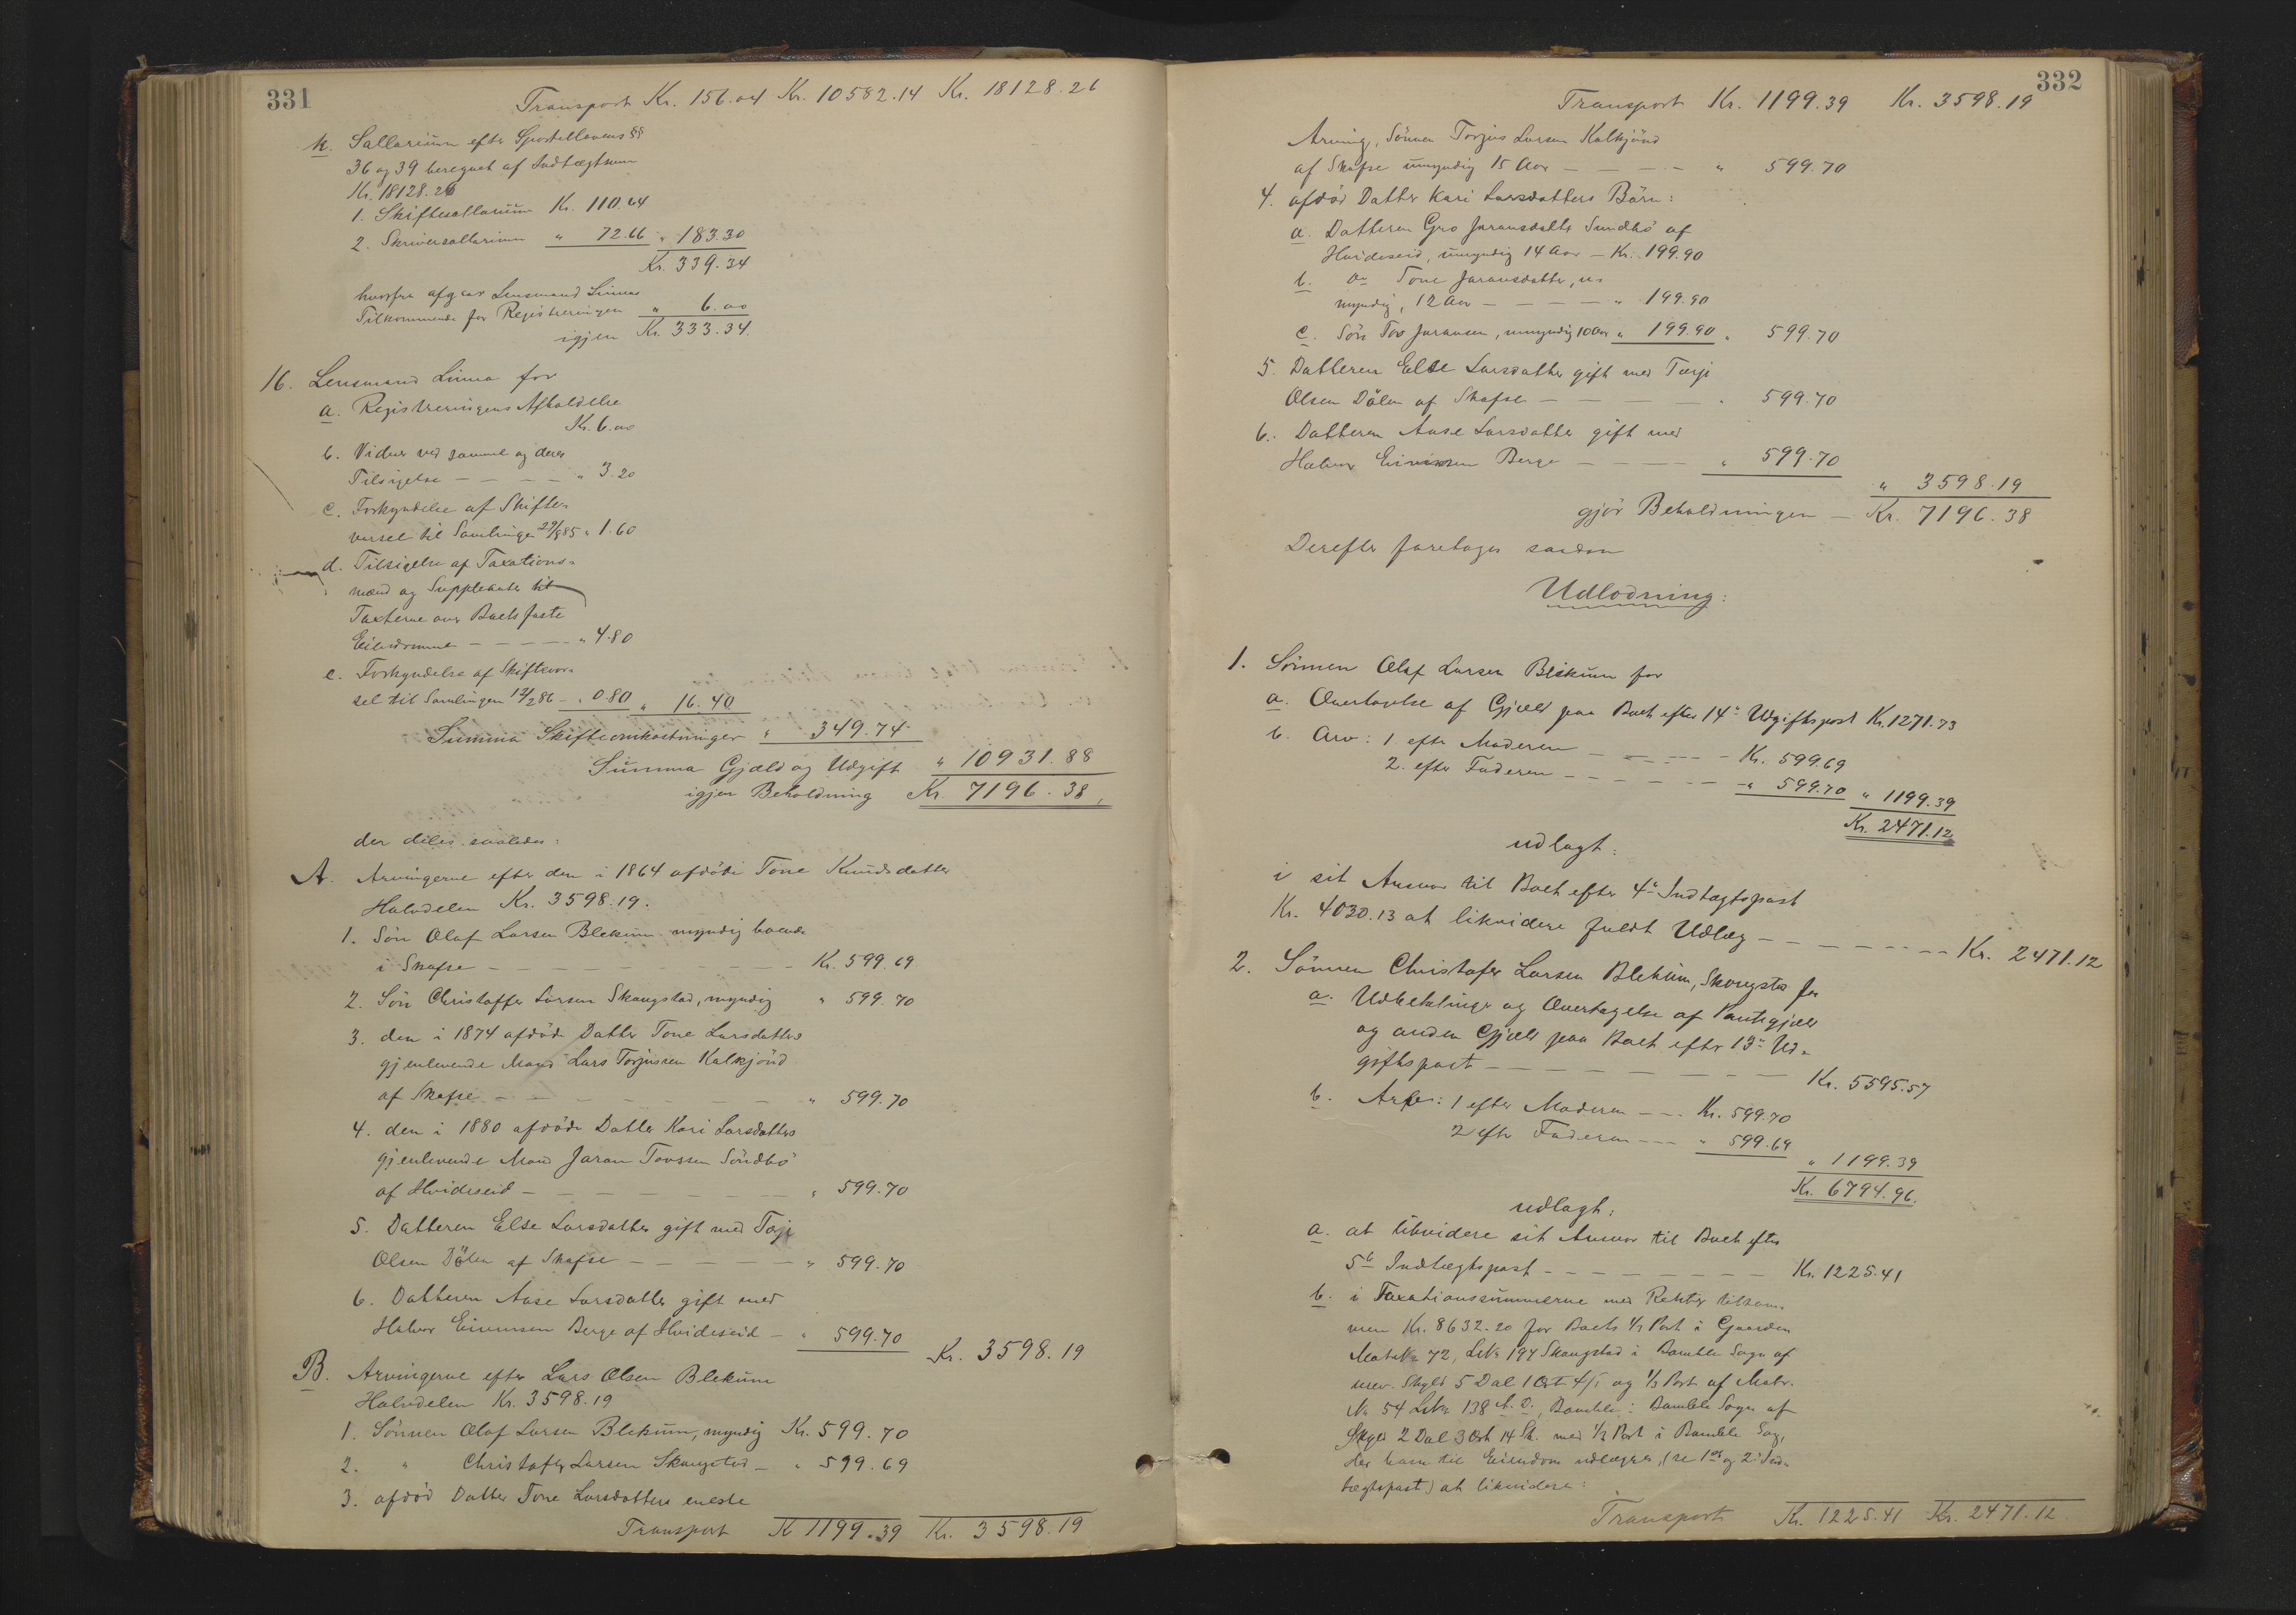 331
Transport Kr. 156.04 Kr. 10582.14 Kr. 18128.26
k. Sallarium efter Sportellovens §§
36 og 39 beregnet af Indtægtssum
Kr. 18128.26
1. Skiftesallarium Kr. 110.64
2. Skriversallarium " 72.66 " 183.30
Kr. 339.34
hvorfra afgaar Lensmand Linnes
Tilkommende for Registreringen " 6.00
igjen Kr. 333.34.
16. Lensmand Linna for
a. Registreringens Afholdelse
Kr. 6.00
b. Vidner ved samme og deres
Tilsigelse — — — — " 3.20
c. Forkyndelse af Skifte-
varsel til Samlingen 29/8 85 " 1.60
d. Tilsigelse af Taxations-
mænd og Suppleanter til
Taxterne over Boets faste
Eiendomme — — — — " 4.80
e. Forkyndelse af Skiftevar-
sel til Samlingen 12/2 86 — " 0.80 " 16.40
Summa Skifteomkostninger " 349.74
Summa Gjæld og Udgift " 10931.88
igjen Beholdning Kr. 7196.38,
der deles saaledes:
A. Arvingerne efter den i 1864 afdöde Tone Knudsdatter
Halvdelen Kr. 3598.19.
1. Sön Olaf Larsen Blekum myndig boende
i Skafse — — — — — — Kr. 599.69
2. Sön Christoffer Larsen Skaugstad, myndig " 599.70
3. den i 1874 afdöde Datter Tone Larsdatters
gjenlevende Mand Lars Torjussen Kalkjönd
af Skafse — — — — — — " 599.70
4. den i 1880 afdöde Datter Kari Larsdatters
gjenlevende Mand Jaran Tovssen Sundbö
af Hvideseid — — — — — — " 599.70
5. Datteren Else Larsdatter gift med Torje
Olsen Dölen af Skafse — — — — — " 599.70
6. Datteren Aase Larsdatter gift med
Halvor Eivinsen Berge af Hvideseid — " 599.70 Kr. 3598.19
B. Arvingerne efter Lars Olsen Blekum
Halvdelen Kr. 3598.19
1. Sönnen Olaf Larsen Blekum, myndig Kr. 599.70
2. " Christofer Larsen Skaugstad — " 599.69
3. afdöd Datter Tone Larsdatters eneste
Transport K 1199.39 Kr. 3598.19
332
Transport Kr. 1199.39 Kr. 3598.19
Arving, Sönnen Torjus Larsen Kalkjönd
af Skafse umyndig 15 Aar — — — — " 599.70
4. afdöd Datter Kari Larsdatters Börn:
a. Datteren Gro Jaransdatter Sundbö af
Hvideseid, umyndig 14 Aar — Kr. 199.90
b. Do Tone Jaransdatter, u-
myndig, 12 Aar — — — — " 199.90
c. Sön Tov Jaransen, umyndig 10 Aar " 199.90 " 599.70
5. Datteren Else Larsdatter gift med Torje
Olsen Dölen af Skafse — — — — — " 599.70
6. Datteren Aase Larsdatter gift med
Halvor Eivinsen Berge — — — — " 599.70
" 3598.19
gjör Beholdningen — Kr. 7196.38
Derefter foretages saadan
Udlodning:
1. Sönnen Olaf Larsen Blekum for
a. Overtagelse af Gjæld paa Boet efter 14de Udgiftspost Kr. 1271.73
b. Arv: 1 efter Moderen — — — — — Kr. 599.69
2. efter Faderen — — — — — — " 599.70 " 1199.39
Kr. 2471.12
udlagt:
i sit Ansvar til Boet efter 4de Indtægtspost
Kr. 4030.13 at likvidere fuldt Udlæg — — — — — — Kr. 2471.12
2. Sönnen Christofer Larsen Blekum, Skaugstad for
a. Udbetalinger og Overtagelse af Pantegjæld
og anden Gjæld paa Boet efter 13de Ud-
giftspost — — — — — — — — Kr. 5595.57
b. Arv: 1 efter Moderen — — Kr. 599.70
2 efter Faderen — — — " 599.69
" 1199.39
Kr. 6794.96.
udlagt:
a. at likvidere sit Ansvar til Boet efter
5te Indtægtspost — — — — — — — Kr. 1225.41
b. i Taxationssummerne med Renter tilsam-
men Kr. 8632.20 for Boets 1/2 Part i Gaarden
Mat. No 72, L. No 194 Skaugstad i Bamble Sogn af
urev. Skyld 5 Dal 1 Ort 4 ß og 1/3 Part af Matr.
No 54 L. No 138 , Bamble i Bamble Sogn af
Skyld 2 Dal 3 Ort 14 Sk. med 1/3 Part i Bamble Sag,
der ham til Eiendom udlægges, (se 1ste og 2den Ind-
tægtspost) at likvidere:
Transport Kr. 1225.41 Kr. 2471.12